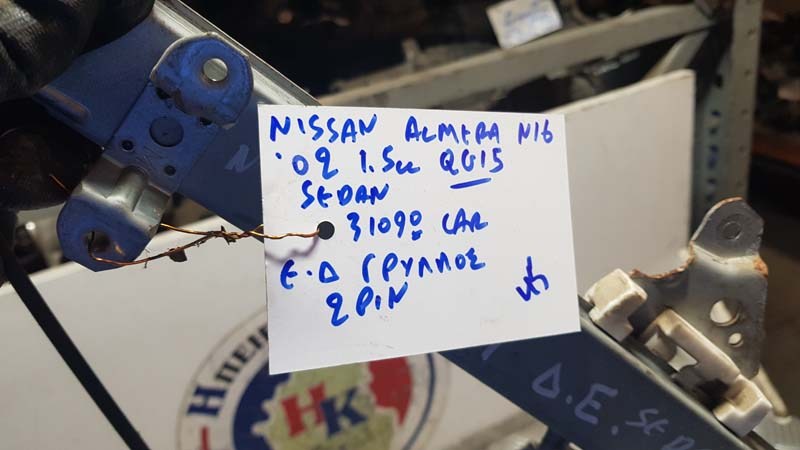 NISSAN ALMERA N16
'02 1.5cc QG15
SEDAN
31090 CAR
Ε.Δ ΓΡΥΛΛΟΣ
2 PIN
Δ.Ε. SED
ΗΠΕΙ
HK